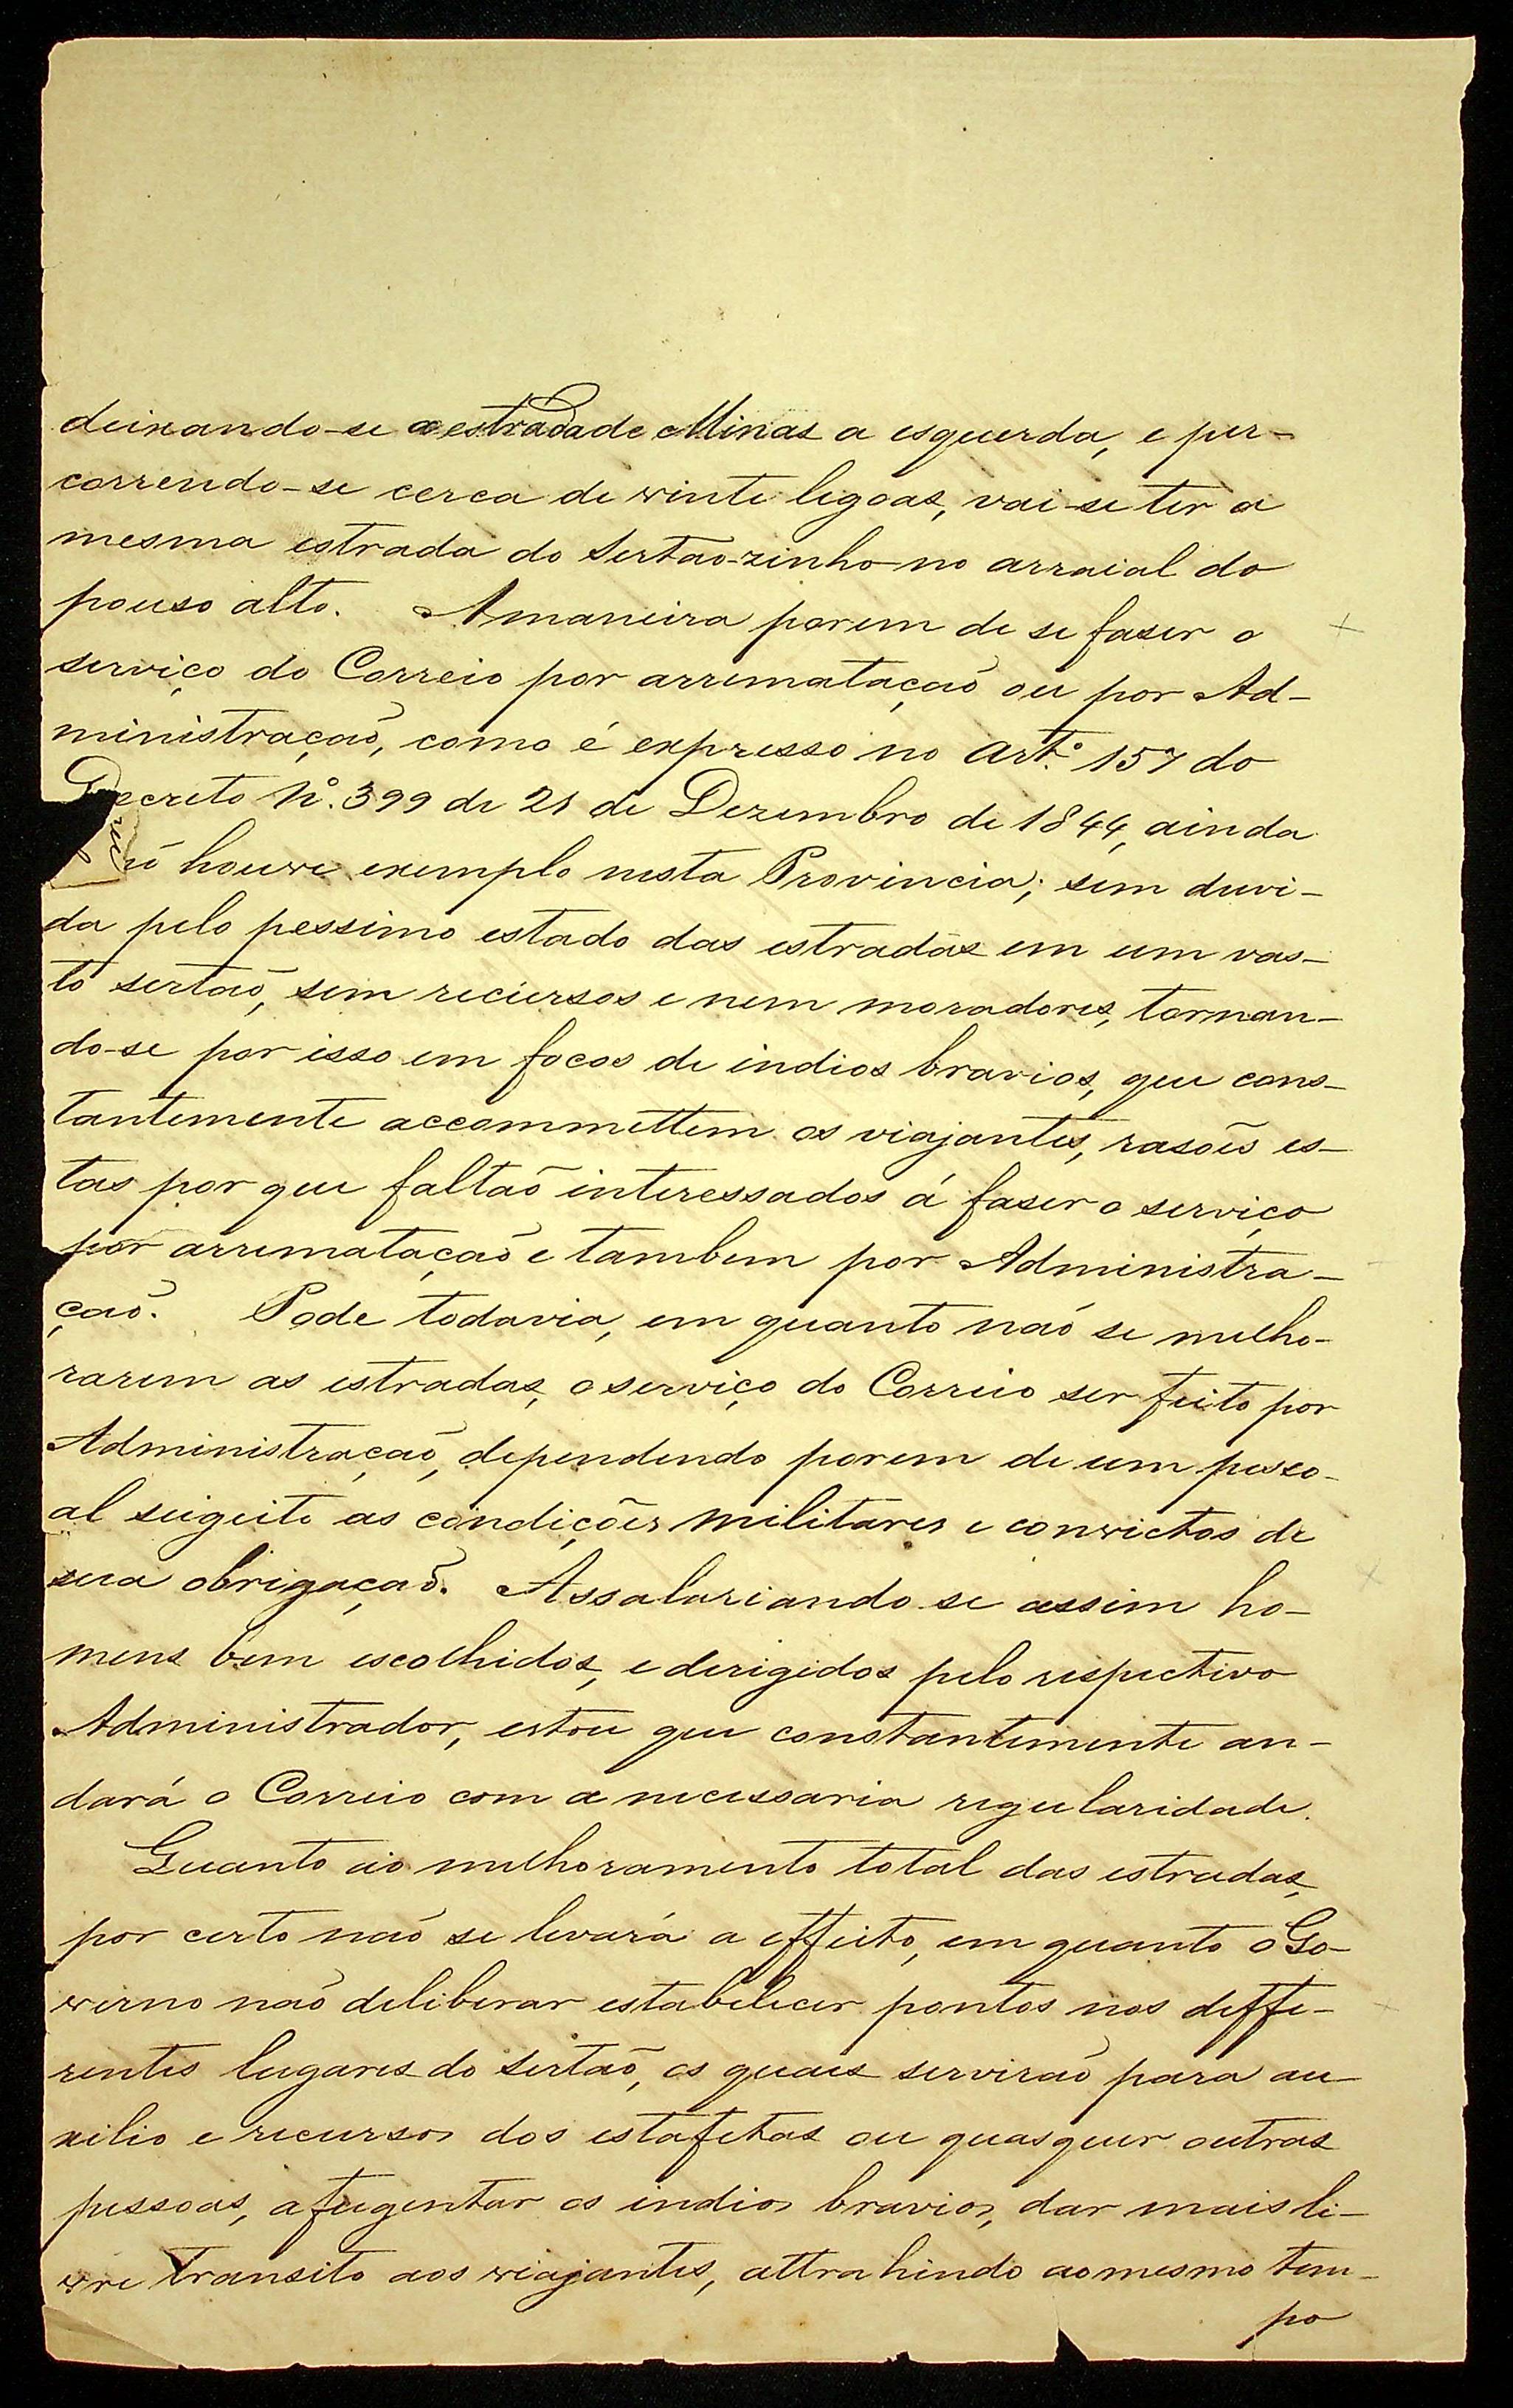 deixando-se a estrada de Minas a esquerda, e per-
correndo-se cerca de vinte legoas, vai-se ter a
mesma estrada do Sertão-zinho no arraial do
pouso alto. A maneira porem de se faser o
serviço do Correio por arrematação ou por Ad-
ministração, como é expresso no Art.º 157 do
Decreto Nº. 399 de 21 de Dezembro de 1844, ainda
houve exemplo nesta Provincia; sem duvi-
da pelo pessimo estado das estradas em um vas-
to sertão, sem recursos e nem moradores, tornan-
do-se por isso em focos de indios bravios, que cons-
tantemente accommettem os viajantes, rasões es-
tas por que faltão interessados á faser o serviço
por arrematação e tambem por Administra-
ção. Pode todavia, em quanto não se melho-
rarem as estradas, o serviço do Correio ser feito por
Administração, dependendo porem de um pesso-
al seigeito as condições militares e convictos de
sua obrigação. Assalariando-se assim ho-
mens bem escolhidos, e derigidos pelo respectivo
Administrador, estou que constantemente an-
dará o Correio com a necessaria regularidade.
Quanto ao melhoramento total das estradas,
por certo não se levará a effeito, em quanto o Go-
verno não deliberar estabelecer pontos nos deffe-
rentes lugares do Sertão, os quaes servirão para au-
xilio e recursos dos estafetas ou quasquer outras
pessoas, afugentar os indios bravios, dar mais li-
vre transito aos viajantes, attrahindo ao mesmo tem-
po